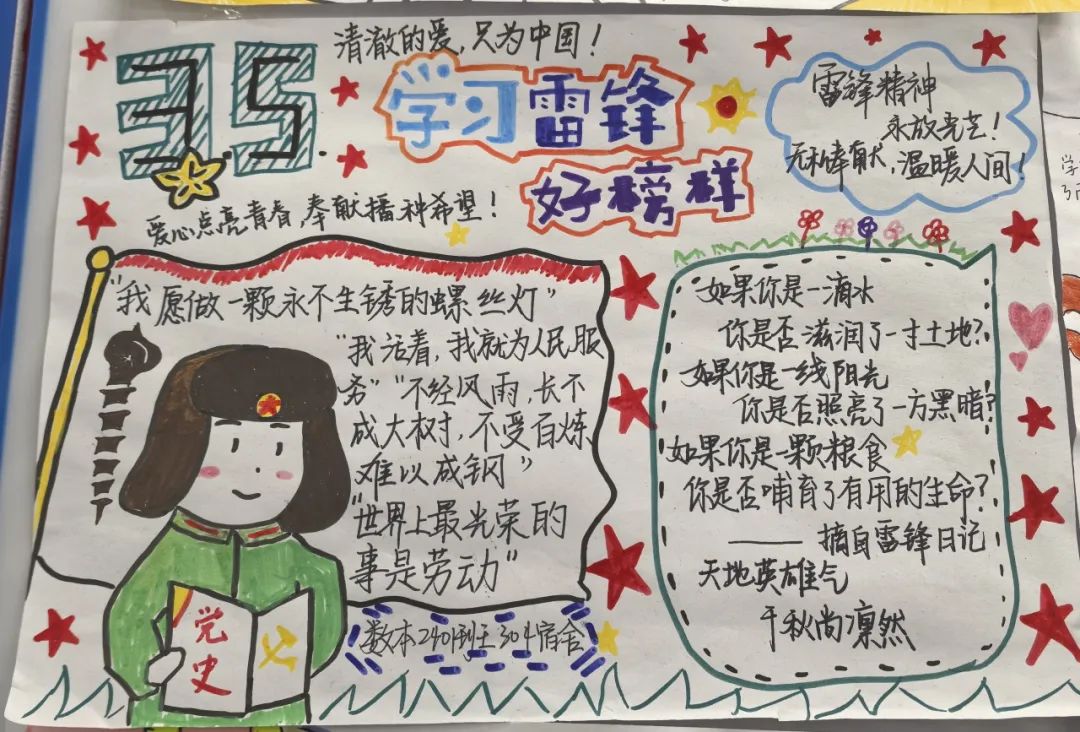 清澈的爱,只为中国!
35
学习雷锋
好榜样
雷锋精神
永放光芒!
无私奉献,温暖人间!
爱心点亮青春,奉献播种希望!
“我愿做一颗永不生锈的螺丝灯”
“我活着,我就为人民服
务”“不经风雨,长不
成大树,不受百炼,
难以成钢”
“世界上最光荣的
事是劳动”
党史
数本2401班 304宿舍
如果你是一滴水
你是否滋润了一寸土地?
如果你是一线阳光
你是否照亮了一方黑暗?
如果你是一颗粮食
你是否哺育了有用的生命?
——摘自雷锋日记
天地英雄气
千秋尚凛然